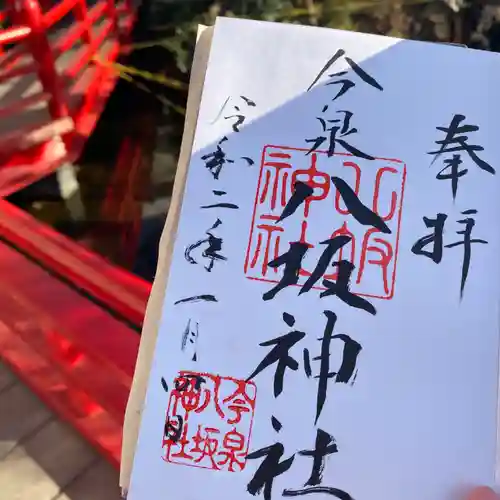 奉拝
今泉八坂神社
令和二年一月四日
八坂神社
今泉八坂神社